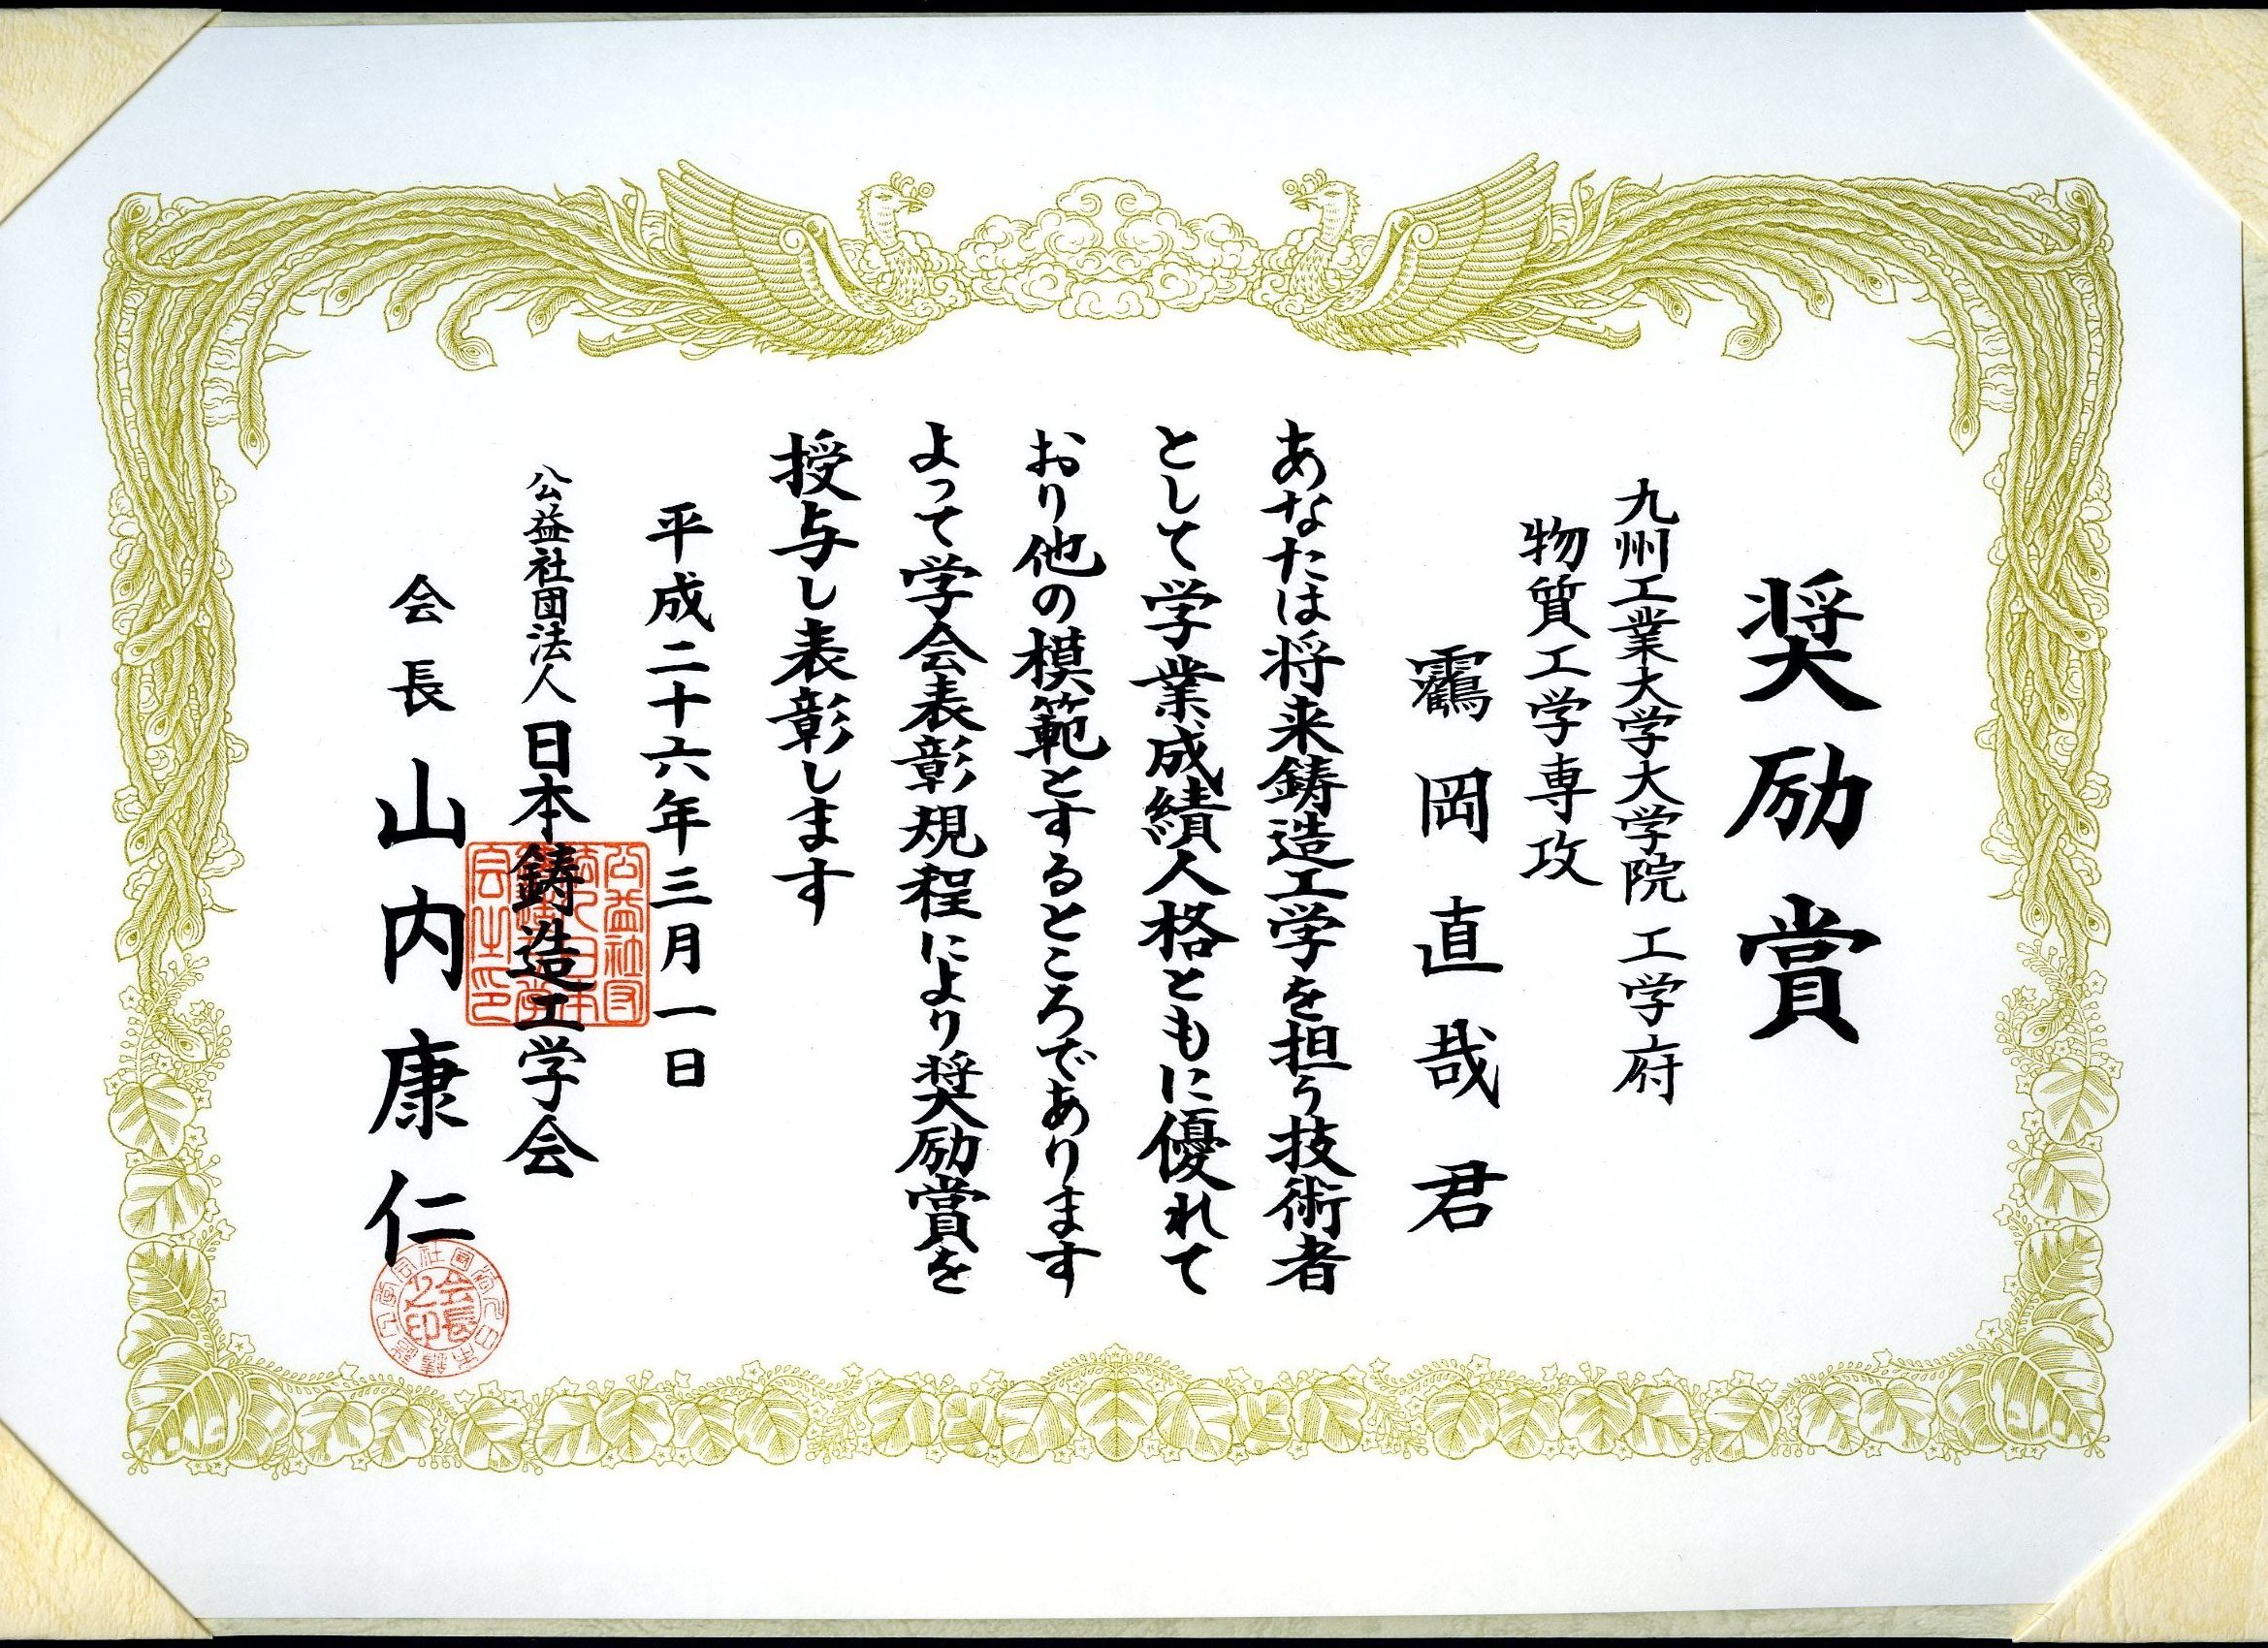 奨励賞
九州工業大学大学院 工学府
物質工学専攻
靏岡直哉君
あなたは将来鋳造工学を担う技術者
として学業成績人格ともに優れて
おり他の模範とするところであります
よって学会表彰規程により奨励賞を
授与し表彰します
平成二十六年三月一日
公益社団法人 日本鋳造工学会
会長 山内康仁
公益社団
法人日本
鋳造工学
会之印
会長之印